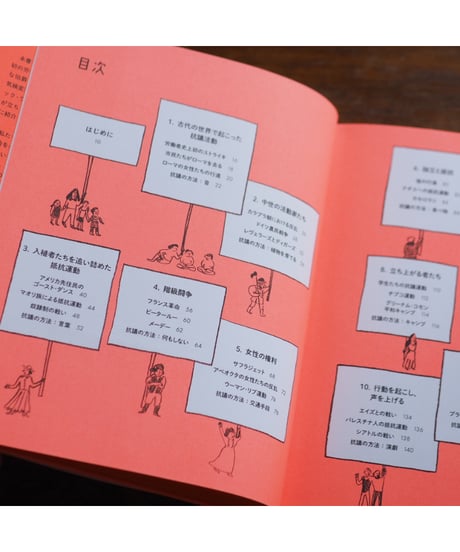 目次
はじめに
10
1. 古代の世界で起こった
抗議活動
労働者史上初のストライキ 16
市民たちがローマを去る 18
ローマの女性たちの行進 20
抗議の方法：音 22
2. 中世の活動家たち
ドイツ農民戦争
レヴェラーズとディガーズ
抗議の方法：植物を育てる
3. 入植者たちを追い詰めた
抵抗運動
アメリカ先住民の
ゴースト・ダンス 40
マオリ族による抵抗運動 44
奴隷制の戦い 48
抗議の方法：言葉 52
4. 階級闘争
フランス革命 56
ピータールー 60
メーデー 62
抗議の方法：何もしない 64
5. 女性の権利
サフラジェット 68
アベオクタの女性たちの反乱 72
ウーマン・リブ運動 74
抗議の方法：交通手段 76
8. 立ち上がる者たち
学生たちの抵抗運動 110
チプコ運動 112
グリーナム・コモン
平和キャンプ 114
抗議の方法：キャンプ 118
10. 行動を起こし、
声を上げる
エイズとの戦い 134
パレスチナ人の抵抗運動 136
シアトルの戦い 138
抗議の方法：演劇 140